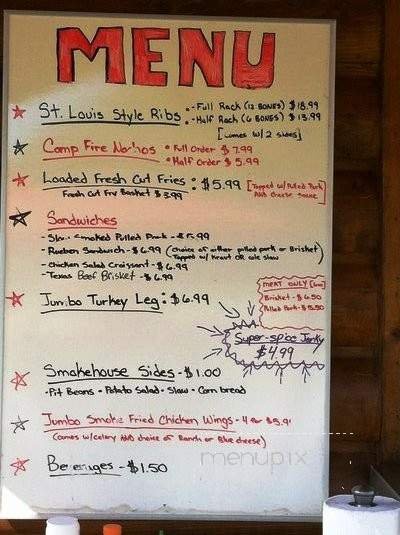 MENU
St. Louis Style Ribs : - Full Rack (12 BONES) $18.99
- Half Rack (6 BONES) $13.99
[comes w/2 sides]
Camp Fire Nachos • Full Order $7.99
• Half Order $5.99
Loaded Fresh Cut Fries : $5.99 [Topped w/ Pulled Pork
AND cheese sauce]
Fresh Cut Fry Basket $3.99
Sandwiches
- Slow Smoked Pulled Pork - $5.99
- Rueben Sandwich - $6.99 (choice of either pulled pork or Brisket)
Topped w/ Kraut OR cole slaw
- Chicken Salad Croissant - $6.99
- Texas Beef Brisket - $6.99
MEAT ONLY
Brisket - $6.50
Pulled Pork - $5.50
Jumbo Turkey Leg : $6.99
Super-spice Jerky
$4.99
Smokehouse Sides - $1.00
- Pit Beans - Potato Salad - Slaw - Corn bread
Jumbo Smoke Fried Chicken Wings - 4 for $5.9
(comes w/celery AND choice of Ranch or Blue cheese)
Beverages - $1.50
menupix